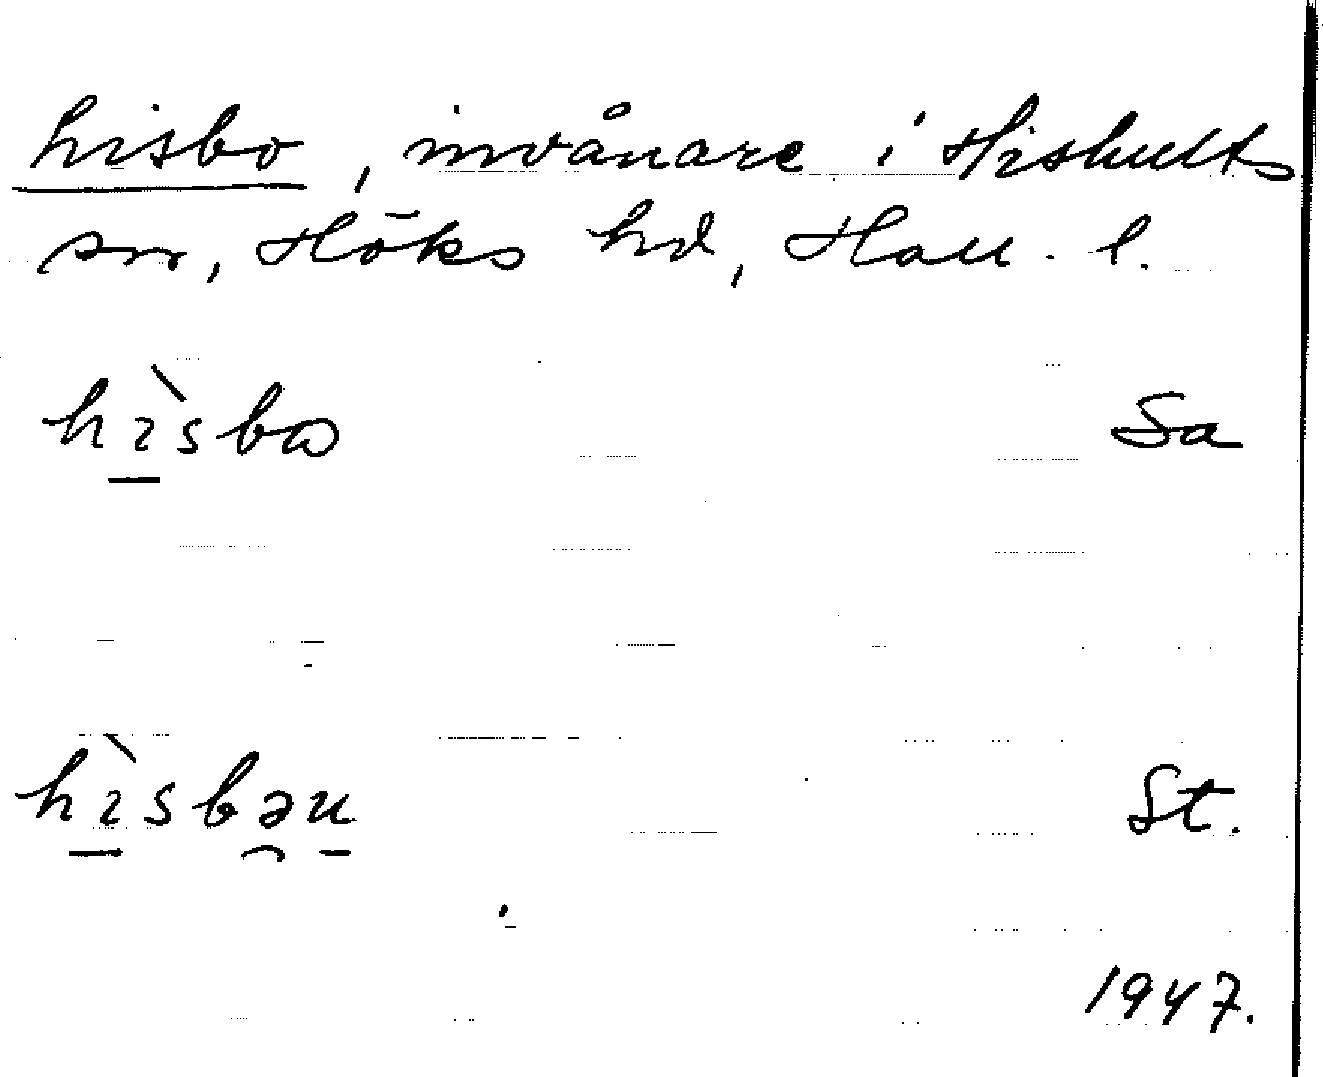 hisbo, invånare i Hishults
sn, Höks hd, Hall. l.
hìsbω Sa
hìsbəu St.
1947.